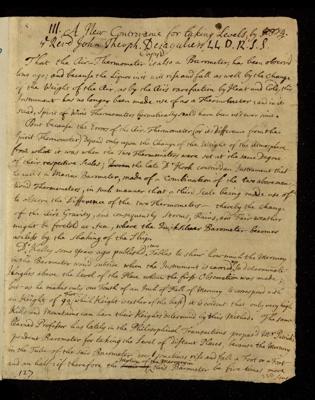 III. A New Contrivance for taking Levels, by
Revd. John Theoph. Desaguliers LL.D. R.S.S.
That the Air-Thermometer is also a Barometer, has been observ'd
long ago; and because the liquor in it will rise and fall as well by the change
of the Weight of the Air, as by the it's rarefaction by Heat and Cold, this
Instrument has no longer been made use of as a Thermometer; and in it
stead, Spirit of Wine Thermometers hermetically seal'd have been us'd ever since.
But because the Error of the Air-Thermometer (or it's difference from the
Spirit Thermometer) depends only upon the Change of the Weight of the Atmosphere
from what it was when the Two Thermometers were set at the same Degree
of their respective Scales; the late Dr. Hook contriv'd an Instrument that
he call'd a Marine Barometer, made of a Combination of the two above-men
tion'd Thermometers, in such manner that a third Scale being made use of
to observe the Difference of the two Thermometers thereby the Change
of the Air's Gravity, and consequently Storms, Rains, or Fair weather
might be foretold at Sea, where the Quicksilver Barometer becomes
useless by the Shaking of the Ship.
Dr. Halley some years ago publish'd Tables to shew how much the Mercury
in the Barometer would fall, when the Instrument is carried to determinate
Heights above the Level of the Place where the first Observation was made
but as he makes only one Tenth of an Inch of Fall of Mercury to correspond with
an Height of 90 it is evident that only very high
Hills and Mountains can have their Heights determin'd by this Method. The same
has lately in the Philosophical Transactions propos'd Mr. Patrick's
pendent Barometer for taking the Level of Different Places, because the Mercury
in the Tube of the said Barometer rise and fall a Foot or a Foot
and an half; if therefore the Motion of the Mercury in that Barometer be five times more
127